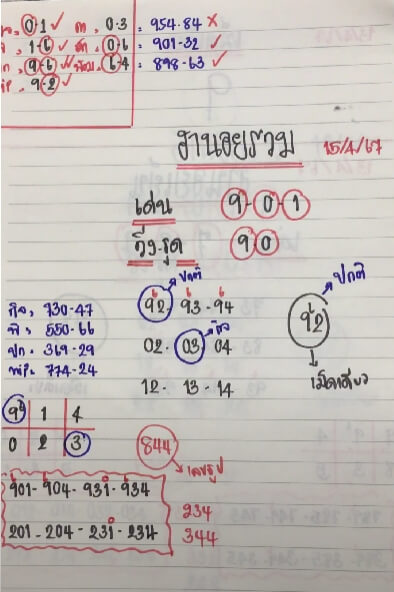 0-1 ✓ ด. 0-3 : 954-84 ✗
1-6 ✓ 0-6 : 901-32 ✓
9-6 ✓ 6-4 : 898-63 ✓
9-2 ✓
ฮานอยรวม 15/4/67
เด่น 9-0-1
วิ่ง-รูด 90
ปกติ
92-93-94
ปกติ
92
เม็ดเดียว
กิจ, 730-47
พิ, 550-66
ปก, 369-29
พัฒ, 774-24
02-03-04
12-13-14
9 1 4
0 2 3
844
เลขธูป
901-904-931-934
201-204-231-234
234
344